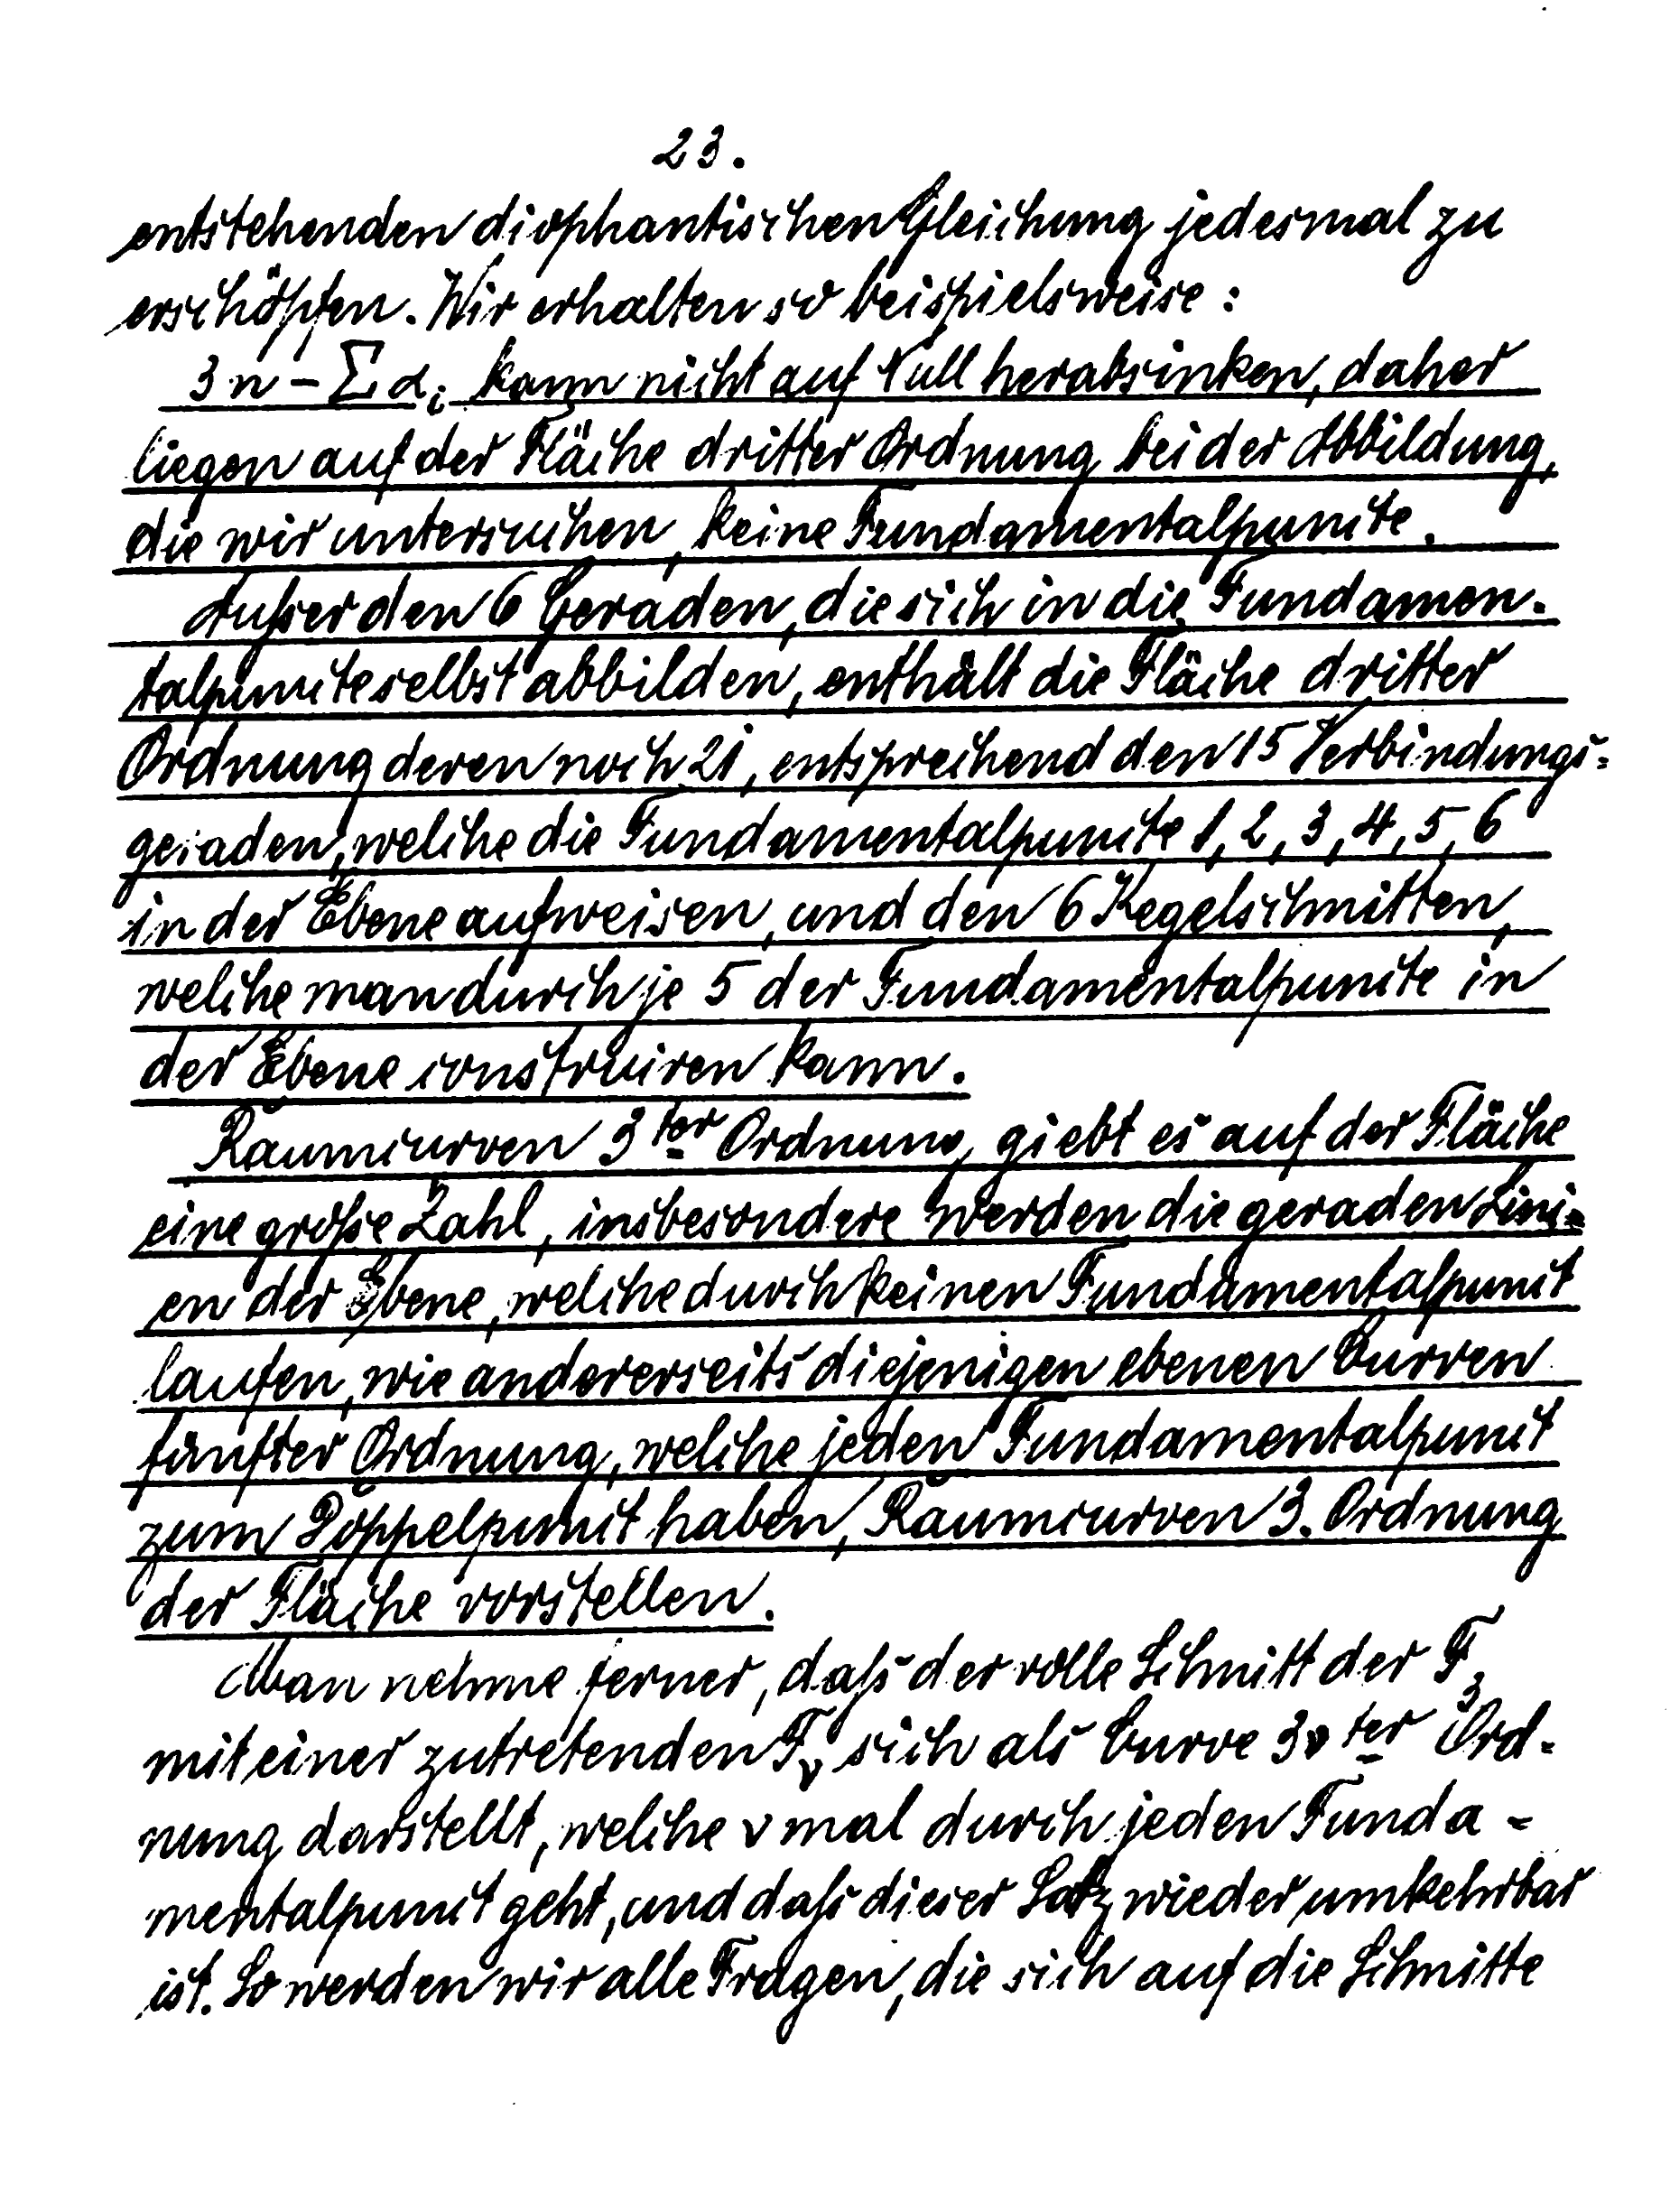 23.
entstehenden diophantischen Gleichung jedesmal zu
erschöpfen. Wir erhalten so beispielsweise:
3n - Σαᵢ kann nicht auf Null herabsinken, daher
liegen auf der Fläche dritter Ordnung bei der Abbildung,
die wir untersuchen, keine Fundamentalpuncte.
Außer den 6 Geraden, die sich in die Fundamen-
talpuncte selbst abbilden, enthält die Fläche dritter
Ordnung deren noch 21, entsprechend den 15 Verbindungs-
geraden, welche die Fundamentalpuncte 1, 2, 3, 4, 5, 6
in der Ebene aufweisen, und den 6 Kegelschnitten,
welche man durch je 5 der Fundamentalpuncte in
der Ebene construiren kann.
Raumcurven 3ter Ordnung giebt es auf der Fläche
eine große Zahl, insbesondere werden die geraden Lini-
en der Ebene, welche durch keinen Fundamentalpunct
laufen, wie andererseits diejenigen ebenen Curven
fünfter Ordnung, welche jeden Fundamentalpunct
zum Doppelpunct haben, Raumcurven 3. Ordnung
der Fläche vorstellen.
Man nehme ferner, daß der volle Schnitt der F₃
mit einer zutretenden Fᵥ sich als Curve 3νter Ord-
nung darstellt, welche ν mal durch jeden Funda-
mentalpunct geht, und daß dieser Satz wieder umkehrbar
ist. So werden wir alle Fragen, die sich auf die Schnitte